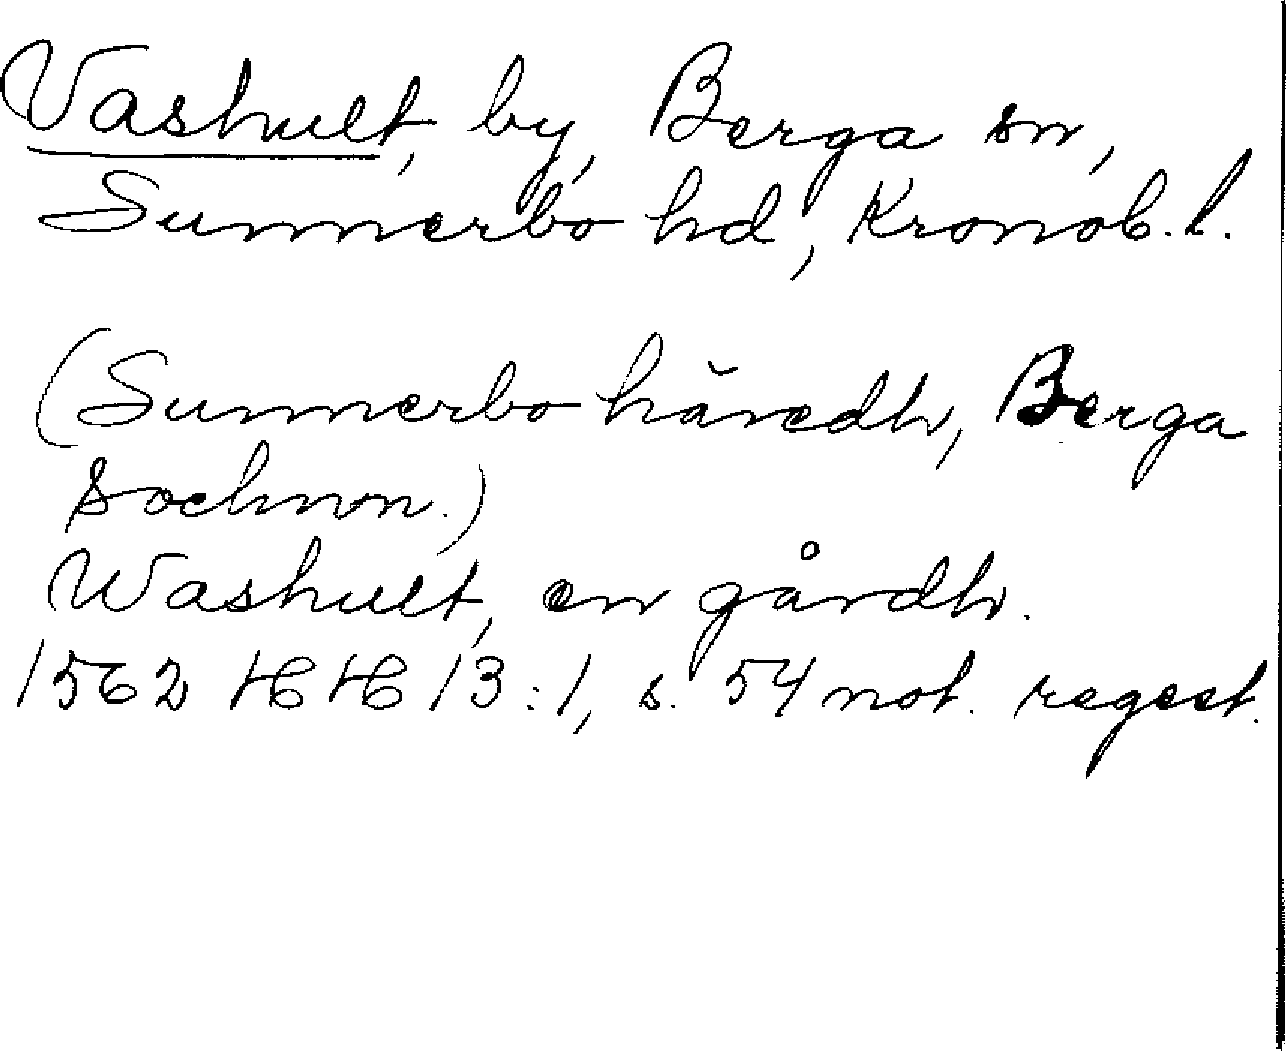 Vashult, by, Berga sn,
Sunnerbo hd, Kronob. l.
(Sunnerbo häredh, Berga
sochnn.)
Washult, en gårdh.
1562 HH 13:1, s. 54 not. regest.